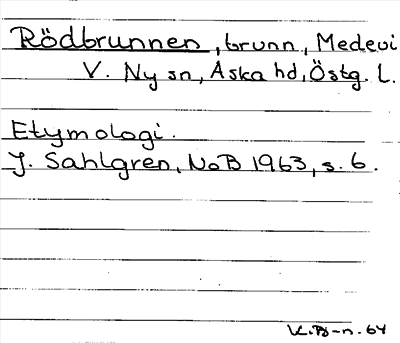 Rödbrunnen, brunn, Medevi
V. Ny sn, Aska hd, Östg. l.
Etymologi.
J. Sahlgren, NoB 1963, s. 6.
K.B-n. 64